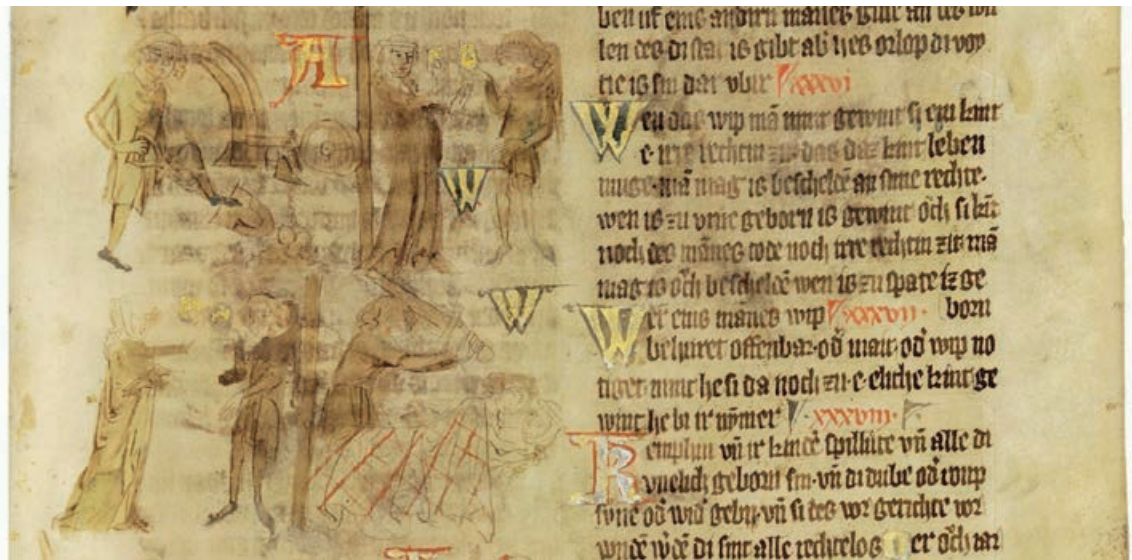 A
W
W
ben uf eins andirn manes gute an des wil
len des di stat is gibt ab orlop di voy
tie is sin dar vbir xxxvi
Wen das wip mā nimt gewint si ein kint
e· irre rechtin zit· das daz kint leben
muge· mā mag is bescheldē an sime rechte·
wen is zu vrue geborn is gewint och si kīt
noch des mānes tode noch irre rechtin zit mā
mag is och bescheldē wen is zu spate iz ge
Wer eins manes wip xxxvii· born
behuret offenbar· od̄ mait· od̄ wip no
tiget· nimt he si da noch zu· e· eliche kint ge
wint he bi ir nȳmer xxxviii·
Kemphin vn̄ ir kindē spillute vn̄ alle di
vnelich geborn sin· vn̄ di dube od̄ roup
sune od̄ wid̄ gebin· vn̄ si des vor gerichte vor
wndē w̄dē di sint alle rechtelos er och dar